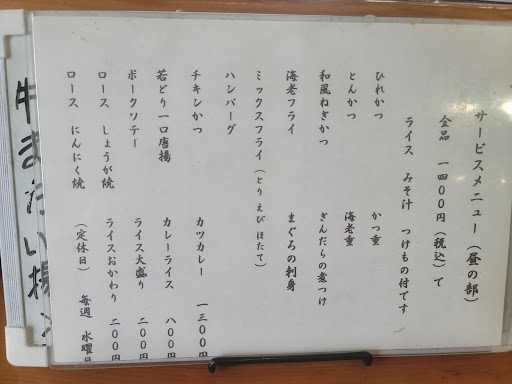 サービスメニュー(昼の部)
全品 一四〇〇円(税込)て
ライス みそ汁 つけもの付てす
ひれかつ かつ重
とんかつ 海老重
和風ねぎかつ ぎんだらの煮つけ
海老フライ まぐろの刺身
ミックスフライ(とりえびほたて)
ハンバーグ
チキンかつ カツカレー 一三〇〇円
若どり一口唐揚 カレーライス 八〇〇円
ポークソテー ライス大盛り 二〇〇円
ロース しょうが焼 ライスおかわり 二〇〇円
ロース にんにく焼 (定休日) 毎週 水曜日